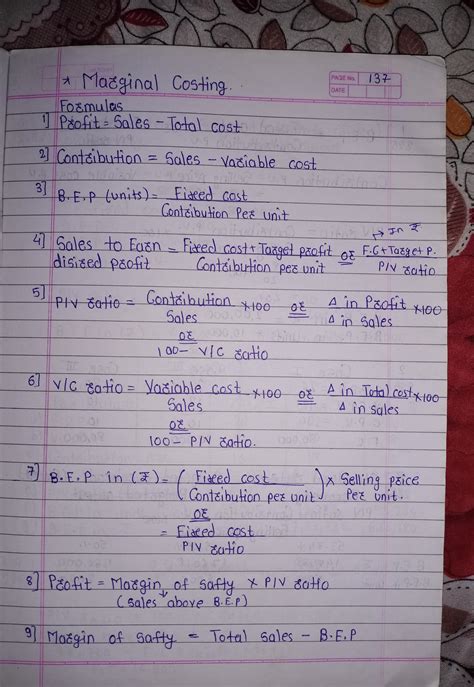 * Marginal Costing.
PAGE No. 137
DATE
Formulas
1] Profit = Sales - Total cost
2] Contribution = Sales - Variable cost
3] B.E.P (units) = Fixed cost
Contribution Per unit
→ In ₹
4] Sales to Earn = Fixed cost + Target profit or F.C + Target P.
disired profit Contribution per unit P/V ratio
5] P/V ratio = Contribution × 100 or Δ in Profit × 100
Sales Δ in Sales
or
100 - V/C ratio
6] V/C ratio = Variable cost × 100 or Δ in Total cost × 100
Sales Δ in sales
or
100 - P/V ratio.
7] B.E.P in (₹) = ( Fixed cost ) × Selling price
Contribution per unit Per unit.
or
= Fixed cost
P/V ratio
8] Profit = Margin of safty × P/V ratio
(sales above B.E.P)
9] Margin of safty = Total sales - B.E.P